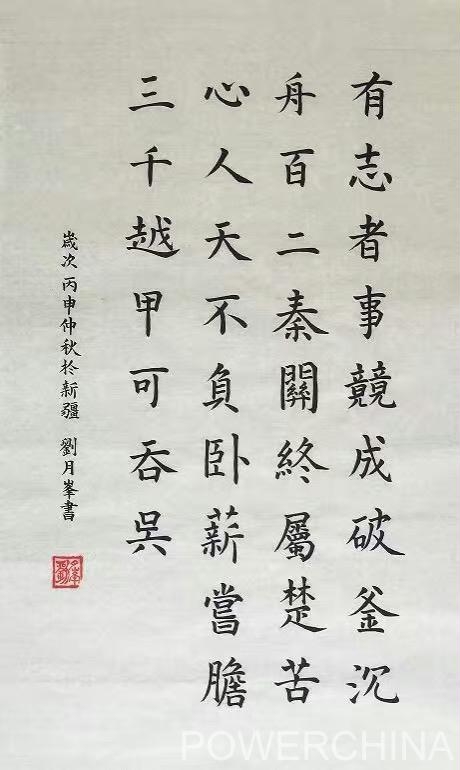 有志者事競成破釜沉
舟百二秦關終屬楚苦
心人天不負卧薪嘗膽
三千越甲可吞吳
嵗次丙申仲秋於新疆 劉月峯書
POWERCHINA